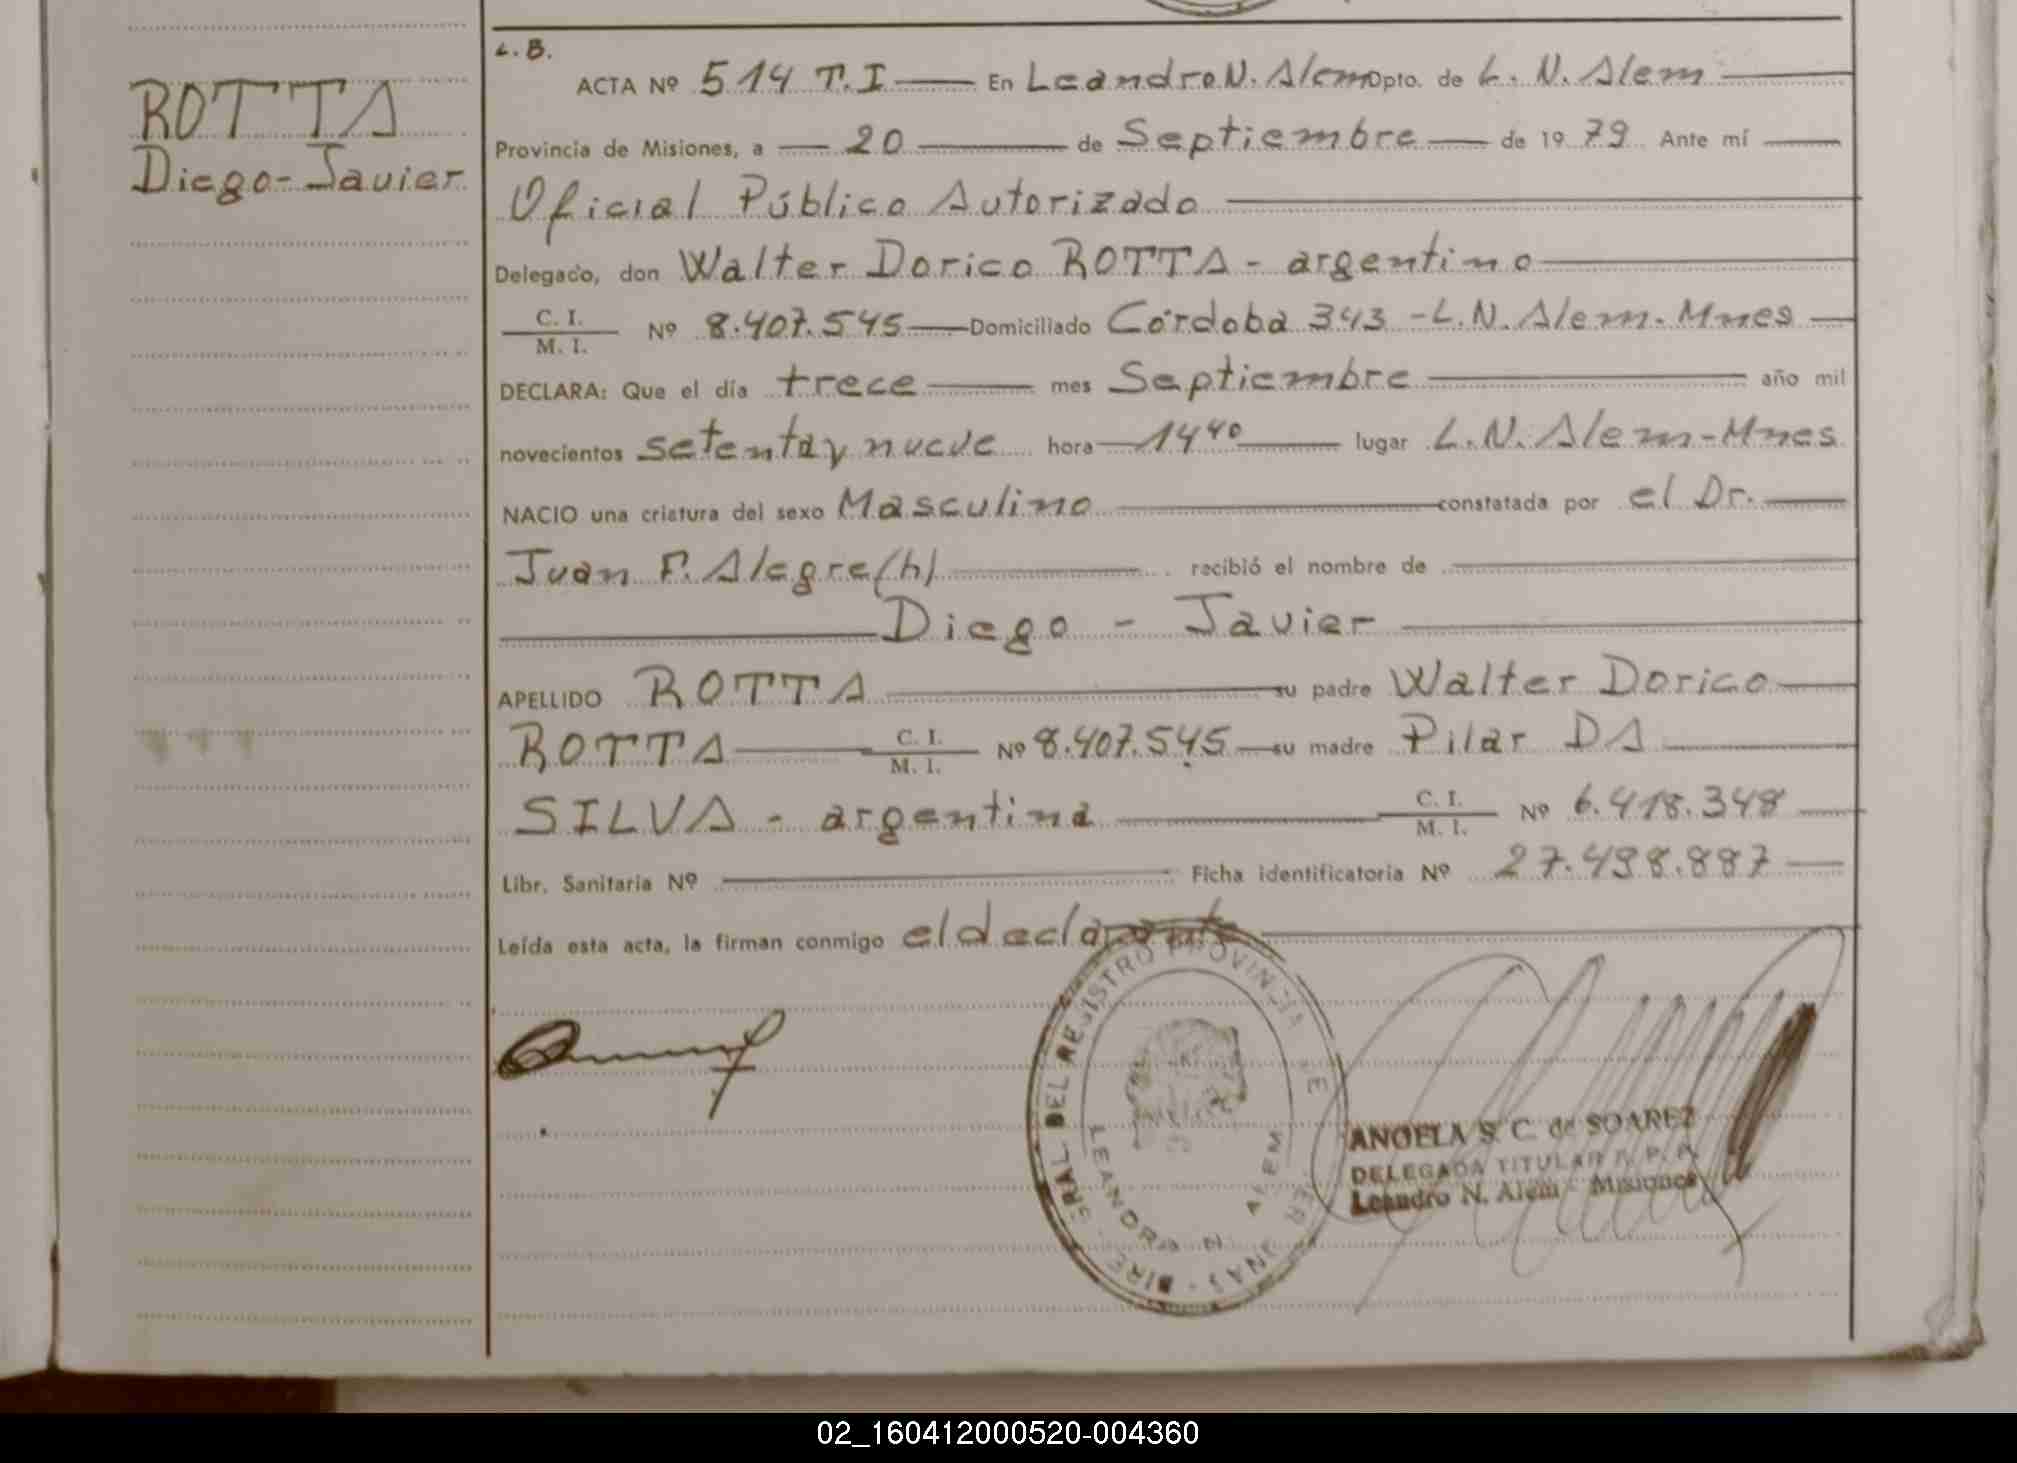 ROTTA
Diego-Javier
L.B.
ACTA Nº 514 T.I En Leandro N. Alem Dpto. de L. N. Alem
Provincia de Misiones, a 20 de Septiembre de 19 79 Ante mí
Oficial Público Autorizado
Delegado, don Walter Dorico ROTTA - argentino
C. I.
M. I. Nº 8.407.545 Domiciliado Córdoba 343 - L.N. Alem. Mnes
DECLARA: Que el día trece mes Septiembre año mil
novecientos setenta y nueve hora 14 40 lugar L.N. Alem - Mnes
NACIO una criatura del sexo Masculino constatada por el Dr.
Juan F. Alegre (h) recibió el nombre de
Diego - Javier
APELLIDO ROTTA su padre Walter Dorico
ROTTA C. I.
M. I. Nº 8.407.545 su madre Pilar DA
SILVA - argentina C. I.
M. I. Nº 6.418.348
Libr. Sanitaria Nº Ficha identificatoria Nº 27.498.887
Leída esta acta, la firman conmigo el declarante
GRAL DEL REGISTRO PROVINCIA DE
LEANDRO N. ALEM
ANGELA S. C. de SOAREZ
DELEGADA TITULAR R. P. P.
Leandro N. Alem - Misiones
02_160412000520-004360